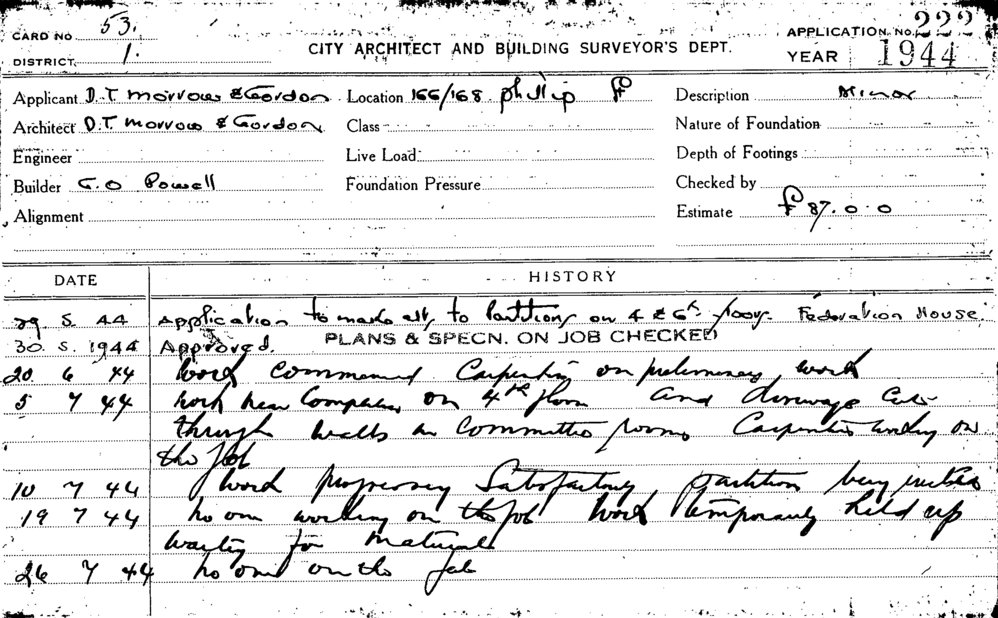 CARD NO 53.
DISTRICT 1.
CITY ARCHITECT AND BUILDING SURVEYOR'S DEPT.
APPLICATION No. 222
YEAR 1944
Applicant D.T. Morrow & Gordon Location 166/168 Phillip Description Minor
Architect D.T. Morrow & Gordon Class Nature of Foundation
Engineer Live Load Depth of Footings
Builder G.O Powell Foundation Pressure Checked by
Alignment Estimate £87.0.0
DATE HISTORY
29 5 44 Application to make alts to Partitions on 4 & 6th floors. Federation House.
30. 5. 1944 Approved. PLANS & SPECN. ON JOB CHECKED
20 6 44 Work commenced Carpenters on preliminary work
5 7 44 Work on 4th floor and
through walls in Committee rooms Carpenters working on
the job
10 7 44 Work progressing Satisfactory partition being
19 7 44 no one working on the job Work temporarily held up
waiting for material
26 7 44 no one on the job